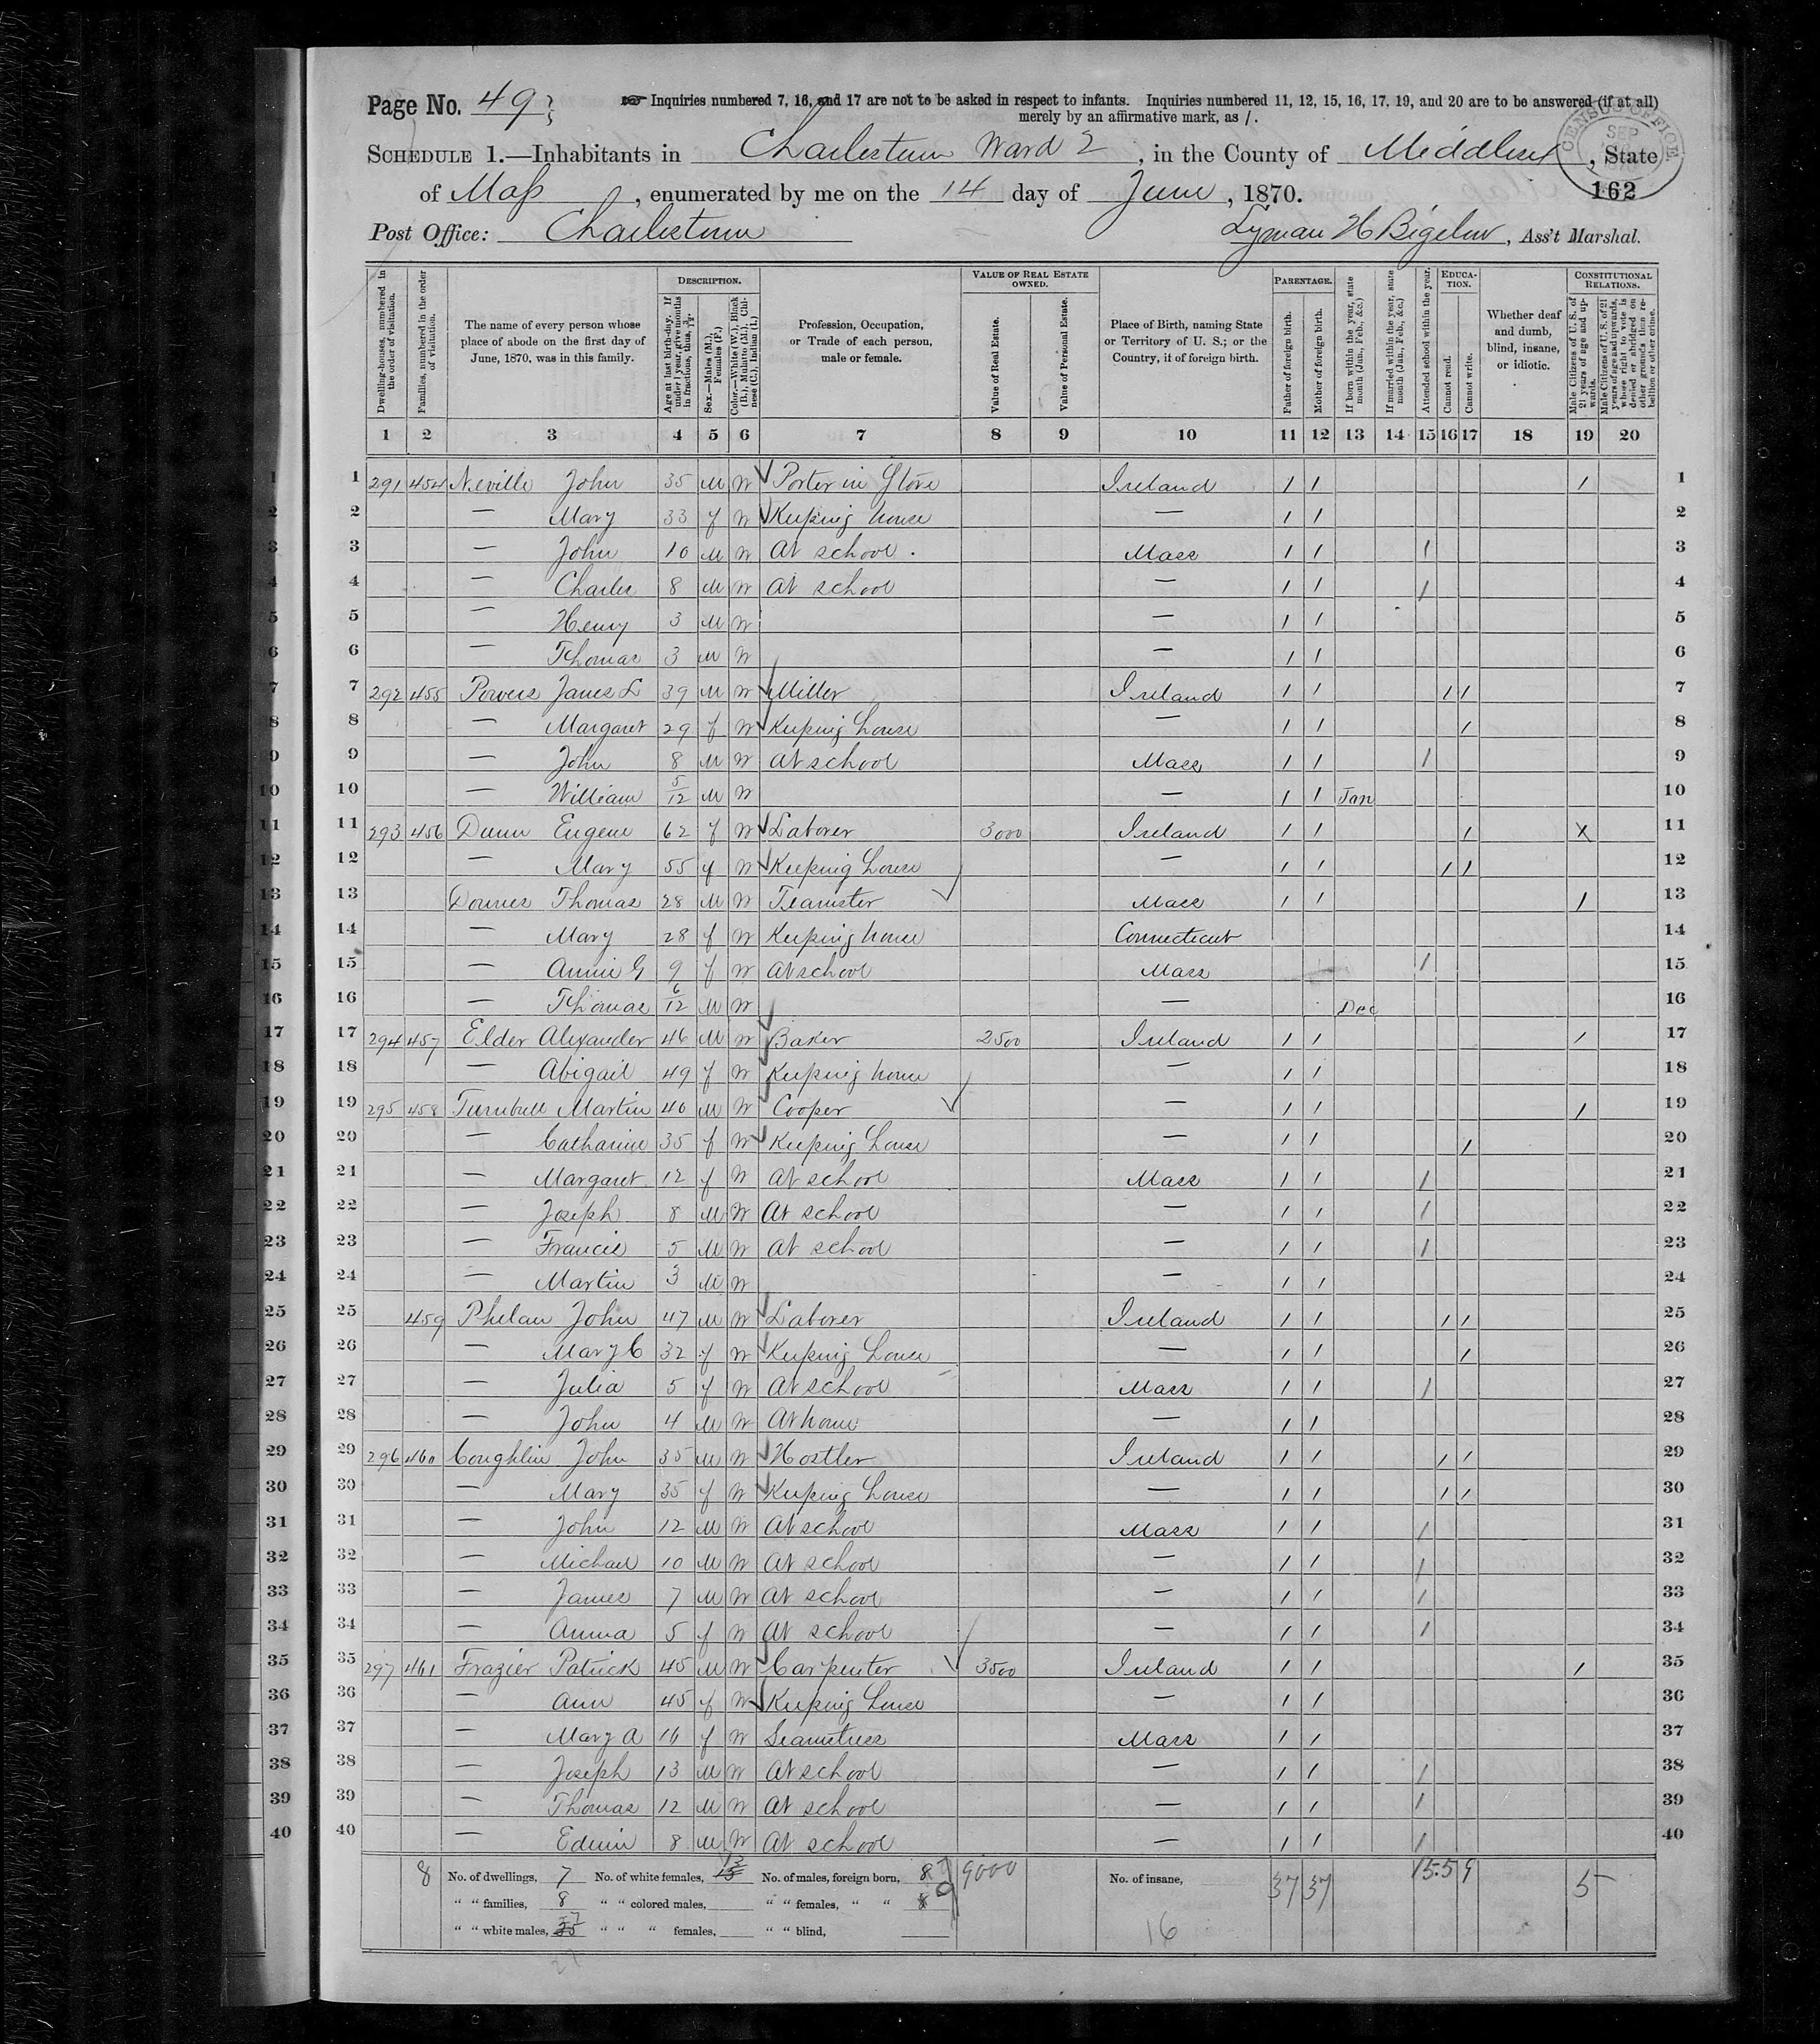 Page No. 49
☞ Inquiries numbered 7, 16, and 17 are not to be asked in respect to infants. Inquiries numbered 11, 12, 15, 16, 17, 19, and 20 are to be answered (if at all)
merely by an affirmative mark, as /.
CENSUS OFFICE SEP
SCHEDULE 1.—Inhabitants in Charlestown Ward 2, in the County of Middlesex, State
of Mass, enumerated by me on the 14 day of June, 1870.
162
Post Office: Charlestown
Lyman H Bigelow, Ass't Marshal.
Dwelling-houses, numbered in the order of visitation.
Families, numbered in the order of visitation.
The name of every person whose place of abode on the first day of June, 1870, was in this family.
DESCRIPTION.
Age at last birth-day. If under 1 year, give months in fractions, thus, 3/12
Sex.—Males (M.), Females (F.)
Color.—White (W.), Black (B.), Mulatto (M.), Chinese (C.), Indian (I.)
Profession, Occupation, or Trade of each person, male or female.
VALUE OF REAL ESTATE OWNED.
Value of Real Estate.
Value of Personal Estate.
Place of Birth, naming State or Territory of U. S.; or the Country, if of foreign birth.
PARENTAGE.
Father of foreign birth.
Mother of foreign birth.
If born within the year, state month (Jan., Feb., &c.)
If married within the year, state month (Jan., Feb., &c.)
Attended school within the year.
EDUCATION.
Cannot read.
Cannot write.
Whether deaf and dumb, blind, insane, or idiotic.
CONSTITUTIONAL RELATIONS.
Male Citizens of U. S. of 21 years of age and upwards.
Male Citizens of U. S. of 21 years of age and upwards, whose right to vote is denied or abridged on other grounds than rebellion or other crime.
1 2 3 4 5 6 7 8 9 10 11 12 13 14 15 16 17 18 19 20
1 291 454 Neville John 35 M W Porter in Store Ireland / / / 1
2 — Mary 33 f W Keeping house — / / 2
3 — John 10 M W At school Mass / / / 3
4 — Charles 8 M W At school — / / / 4
5 — Henry 3 M W — / / 5
6 — Thomas 3 M W — / / 6
7 292 455 Powers James L 39 M W Miller Ireland / / / / 7
8 — Margaret 29 f W Keeping house — / / / 8
9 — John 8 M W At school Mass / / / 9
10 — William 5/12 M W — / / Jan 10
11 293 456 Dunn Eugene 62 f W Laborer 3000 Ireland / / / X 11
12 — Mary 55 f W Keeping house — / / / / 12
13 Downes Thomas 28 M W Teamster Mass / / / 13
14 — Mary 28 f W Keeping house Connecticut 14
15 — Annie G 9 f W At school Mass / 15
16 — Thomas 6/12 M W — Dec 16
17 294 457 Elder Alexander 46 M W Baker 2500 Ireland / / / 17
18 — Abigail 49 f W Keeping house — / / 18
19 295 458 Turnbull Martin 40 M W Cooper — / / / 19
20 — Catharine 35 f W Keeping house — / / / 20
21 — Margaret 12 f W At school Mass / / / 21
22 — Joseph 8 M W At school — / / / 22
23 — Francis 5 M W At school — / / / 23
24 — Martin 3 M W — / / 24
25 459 Phelan John 47 M W Laborer Ireland / / / / 25
26 — Mary C 32 f W Keeping house — / / / 26
27 — Julia 5 f W At school Mass / / / 27
28 — John 4 M W At home — / / 28
29 296 460 Coughlin John 35 M W Hostler Ireland / / / / 29
30 — Mary 35 f W Keeping house — / / / / 30
31 — John 12 M W At school Mass / / / 31
32 — Michael 10 M W At school — / / / 32
33 — James 7 M W At school — / / / 33
34 — Anna 5 f W At school — / / / 34
35 297 461 Frazier Patrick 45 M W Carpenter 3500 Ireland / / / 35
36 — Ann 45 f W Keeping house — / / 36
37 — Mary A 16 f W Seamstress Mass / / 37
38 — Joseph 13 M W At school — / / / 38
39 — Thomas 12 M W At school — / / / 39
40 — Edwin 8 M W At school — / / / 40
8 No. of dwellings, 7 No. of white females, 13 No. of males, foreign born, 8 9000 No. of insane, 37 37 15 5 9 5
" " families, 8 " " colored males, " " females, " "
" " white males, 27 " " " females, " " blind, 16